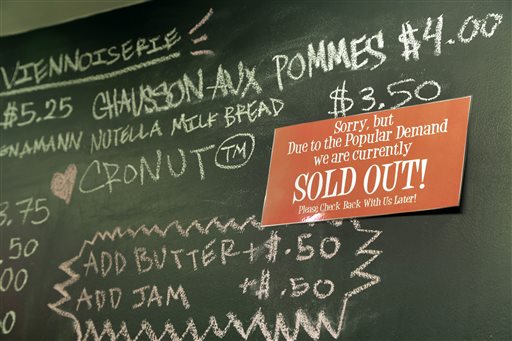 VIENNOISERIE
$5.25 CHAUSSON AUX POMMES $4.00
NUTELLA MILK BREAD $3.50
CRONUT TM
3.75
ADD BUTTER +$.50
ADD JAM +$.50
Sorry, but
Due to the Popular Demand
we are currently
SOLD OUT!
Please Check Back With Us Later!